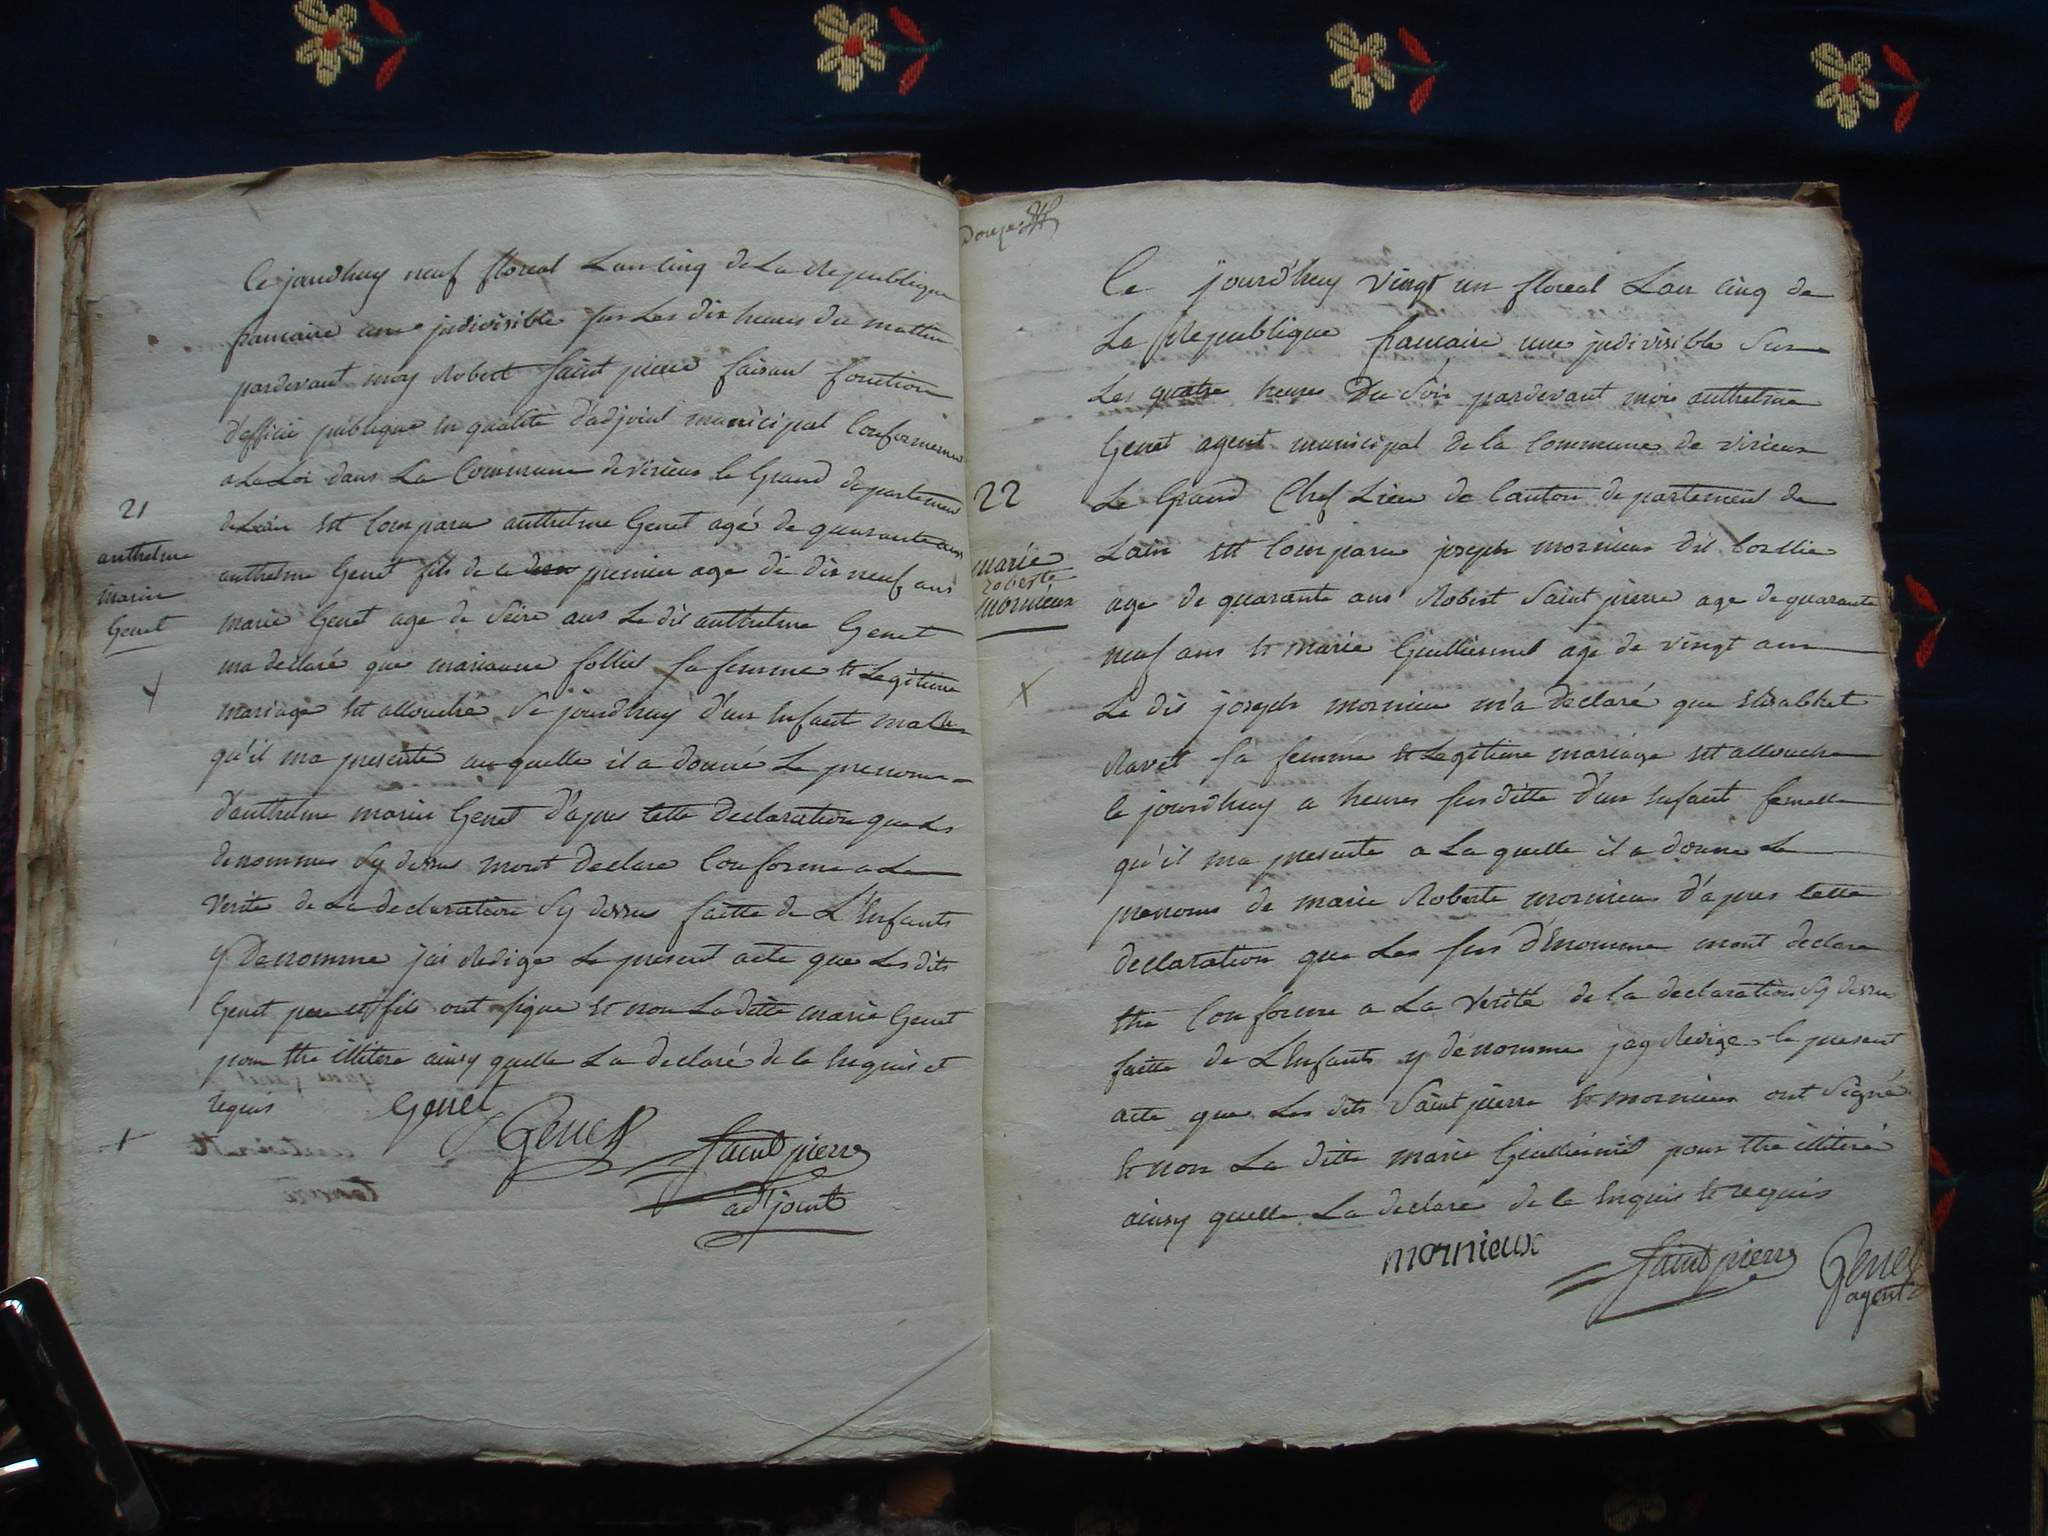 Ce jourdhuy neuf floreal Lan cinq de La Republique
francaise une judivisible sur Les dix heures du mattin
pardevant moy Robert Saint pierre faisant fonction
d'officié publique en qualité d'adjoint municipal Conformement
a La Loi dans La Commune de virieux le Grand departement
de Lain est Comparu anthelme Genet agé de quarante ans
anthelme Genet fils de ce premier age de dix neuf ans
marie Genet age de Seize ans Le dit anthelme Genet
ma declaré que marianne follliet sa femme et Legitime
mariage est accouché Ce jourdhuy d'un Enfant malle
qu'il ma presenté au quelle il a donné Le prenome
d'anthelme marin Genet d'apres Cette Declaration que Les
denommes Cy dessus mont Declare Conforme a La
verite de La declaration Cy dessus faitte de L'Enfants
y Denomme jai Redige Le present acte que Les dits
Genet pere et fils ont signe et non La ditte marie Genet
pour Etre illitere ainsy quelle La declaré de ce Enquis et
requis
Genet
Genet
Saint pierre
adjoint
21
anthelme
marin
Genet
douze
Ce jourd'huy vingt un floreal Lan cinq de
La Republique francaise une judivisible Sur
Les quatre heures Du Soir pardevant moi anthelme
Genet agent municipal de la Commune de virieux
Le Grand Chef Lieu de Canton departement de
Lain est Comparu joseph mornieux dit
age de quarante ans Robert Saint pierre age de quarante
neuf ans et marie Guilliermet age de vingt ans
Le dit joseph mornieu m'a declaré que Elisabhet
Ravet sa femme et Legitime mariage est accouché
Ce jourdhuy a heures sus ditte d'un Enfant femelle
qu'il ma presente a La quelle il a donne Le
prenoms de marie Roberte mornieux d'apres Cette
declaration que Les sus dénomme mont declare
Etre Conforme a La verité de la declaration Cy dessus
faitte de L'Enfants y dénomme jay Redige le present
acte que Les dits Saint pierre et mornieux ont Signé
et non La ditte marie Guillermet pour Etre illiteré
ainsy quelle La declare de ce Enquis et requis
mornieux
Saint pierre
Genet
agent
22
marie
roberte
mornieux